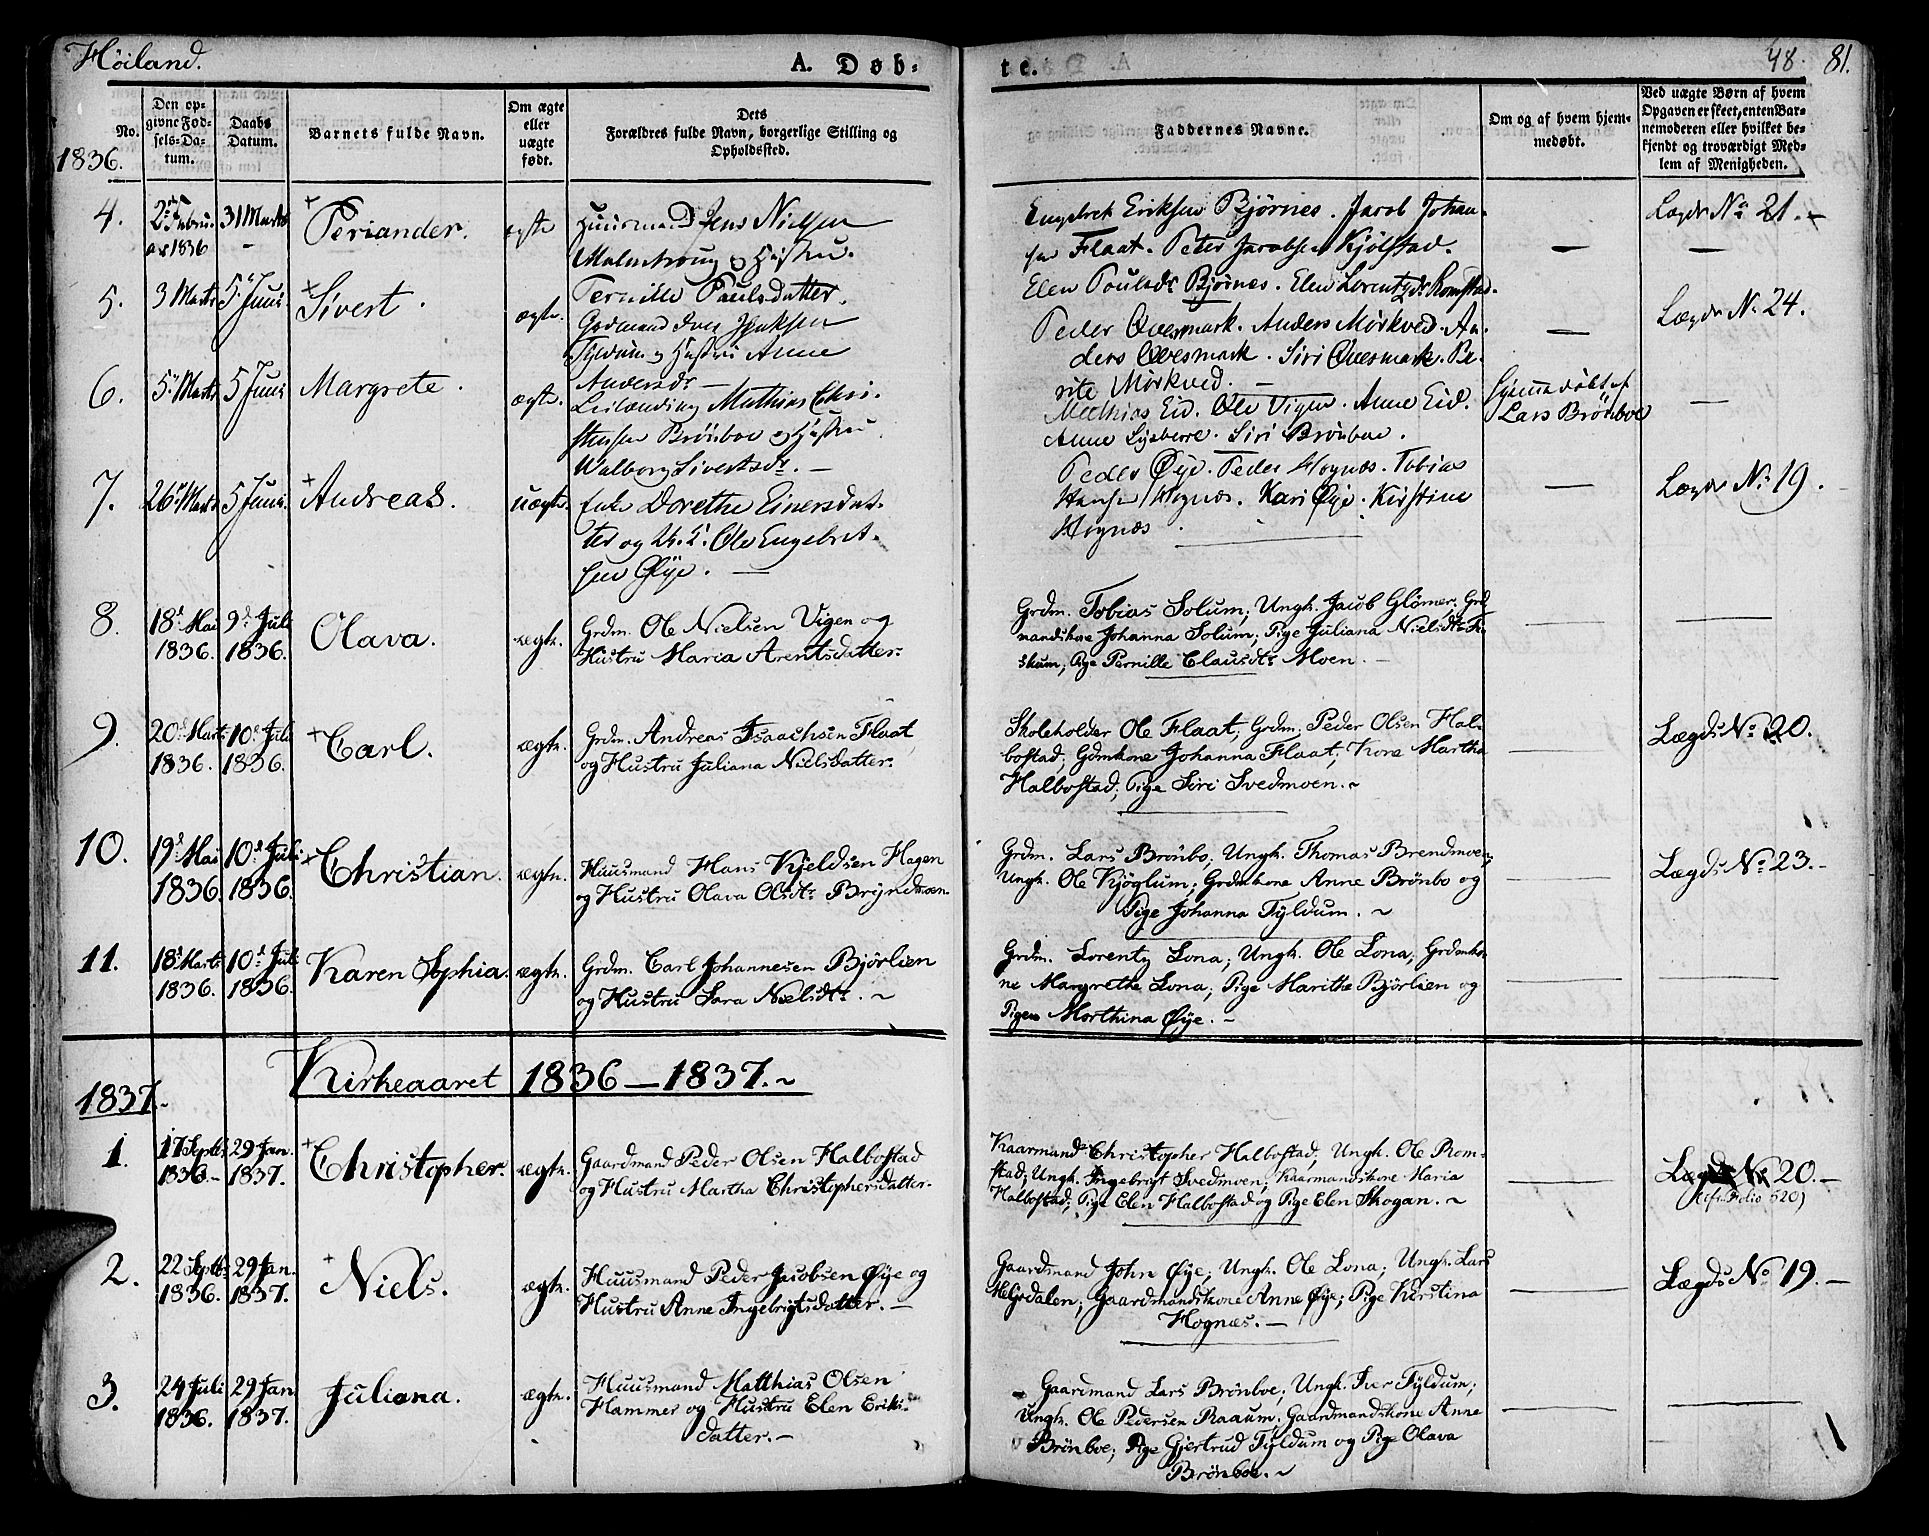 Höiland.
A. Døb-
te.
48. 81.
No.
Den opgivne Fødsels-Datum.
Daabs Datum.
Barnets fulde Navn.
Om ægte eller uægte født.
Dets Forældres fulde Navn, borgerlige Stilling og Opholdssted.
Faddernes Navne.
Om og af hvem hjemmedøbt.
Ved uægte Børn af hvem Opgaven er skeet, enten Barnemoderen eller hvilket bekjendt og troværdigt Medlem af Menigheden.
1836.
4. 2d Februar 1836 31 Marts Periander. ægte
Huusmand Jens Nielsen
Malmhaug og Hustru
Pernille Paulsdatter.
Engebret Eriksen Bjørnes. Jacob Johan-
sen Flaat. Peter Jacobsen Kjölstad.
Elen Poulsdr Bjørnes. Elen Lorentzdr Romstad.
— Lægds No 21. —
5. 3 Marts 5 Juni Sivert. ægte.
Gdmand Iver
Tyldum og Hustru Anne
Andersdr —
Peder Qvesmark. Anders Mörkved. An-
ders Qvesmark. Siri Qvesmark. Be-
rite Mörkved. —
— Lægds No 24.
6. 5 Marts 5 Juni Margrete. ægte.
Leilænding Mathias Chri-
stensen Brönboe og Hustru
Walborg Sivertsdr. —
Mathias Eid. Ole Vigen. Anne Eid.
Anne Siri Brönboe.
Hjemmedöbt af
Lars Brönboe
—
7. 26 Marts 5 Juni. Andreas. uægte.
Enke Dorethe Einersdat-
ter og Ole Engebret-
sen Øye. —
Peder Øye. Peder Hognæs. Tobias
Hansen Hognæs. Kari Øye. Kirstine
Hognæs.
— Lægds No 19.
8. 18d Mai 1836. 9d Juli 1836. Olava. ægte.
Grdm. Ole Nielsen Vigen og
Hustru Maria Arentsdatter.
Grdm. Tobias Solum; Ungk. Jacob Glömer; Grd
mandskone Johanna Solum; Pige Juliana Nielsdtr Fi-
skum; Pige Pernille Clausdtr Moen. —
9. 20d Marts 1836. 10d Juli 1836. Carl. ægte.
Grdm. Andreas Isaachsen Flaat,
og Hustru Juliana Nielsdatter.
Skoleholder Ole Flaat; Grdm. Peder Olsen Hal-
bostad; Gdmkone Johanna Flaat; Kone Martha
Halbostad; Pige Siri Svedmoen. ~
Lægds No 20.
10. 19d Mai 1836. 10d Juli 1836. Christian. ægte.
Huusmand Hans Kjeldsen Hagen
og Hustru Olava Olsdtr Bryndmoen
Grdm. Lars Brönbo; Ungk. Thomas Brendmoen;
Ungk. Ole Kjöglum; Grdmkone Anne Brönbo og
Pige Johanna Tyldum. ~
Lægds No 23. —
11. 18d Marts 1836. 10d Juli 1836. Karen Sophia. ægte.
Grdm. Carl Johannesen Bjørlien
og Hustru Sara Nielsdtr. ~
Grdm. Lorentz Lona; Ungk. Ole Lona; Grdmko-
ne Margrethe Lona; Pige Marithe Bjørlien og
Pigen Morthina Øye. —
Kirkeaaret 1836 — 1837. ~
1837. -
1. 17 Septb. 1836. — 29 Jan. 1837. Christopher. ægte.
Gaardmand Peder Olsen Halbostad
og Hustru Martha Christophersdatter.
Kaarmand Christopher Halbostad; Ungk. Ole Rom-
stad; Ungk. Ingebrigt Svedmoen; Kaarmandskone Maria
Halbostad; Pige Elen Halbostad og Pige Elen Skogan. ~
Lægds No 20. —
(cfr. Folio 520)
2. 22 Septb. 1836. 29 Jan. 1837. Niels. ægte.
Huusmand Peder Jacobsen Øye og
Hustru Anne Ingebrigtsdatter. —
Gaardmand John Øye; Ungk. Ole Lona; Ungk. Lars
Helgdalen; Gaardmandskone Anne Øye; Pige Kerstina
Hognæs. —
Lægds No 19. —
3. 24 Juli 1836. 29 Jan 1837. Juliana. ægte.
Huusmand Matthias Olsen
Hammer og Hustru Elen Eriks-
datter. —
Gaardmand Lars Brönboe; Ungk. Iver Tyldum;
Ungk. Ole Pedersen Raaum; Gaardmandskone Anne
Brönboe; Pige Gjertrud Tyldum og Pige Olava
Brönboe. ~